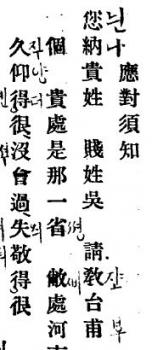 應對須知
닌나
您納貴姓 賤姓吳 請教台甫
부
個 貴處是那一省 敝處河
셩
久仰得很沒會過失敬得很